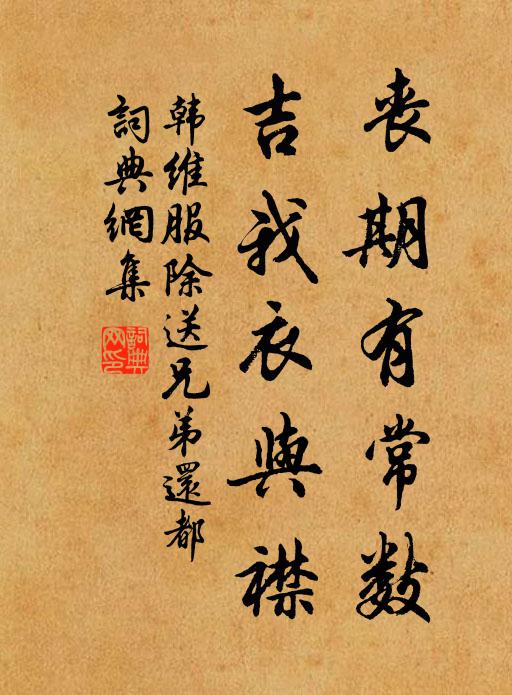 丧期有常数
吉我衣與襟
韩维服除送兄弟還都
詞典網集
詞典网印